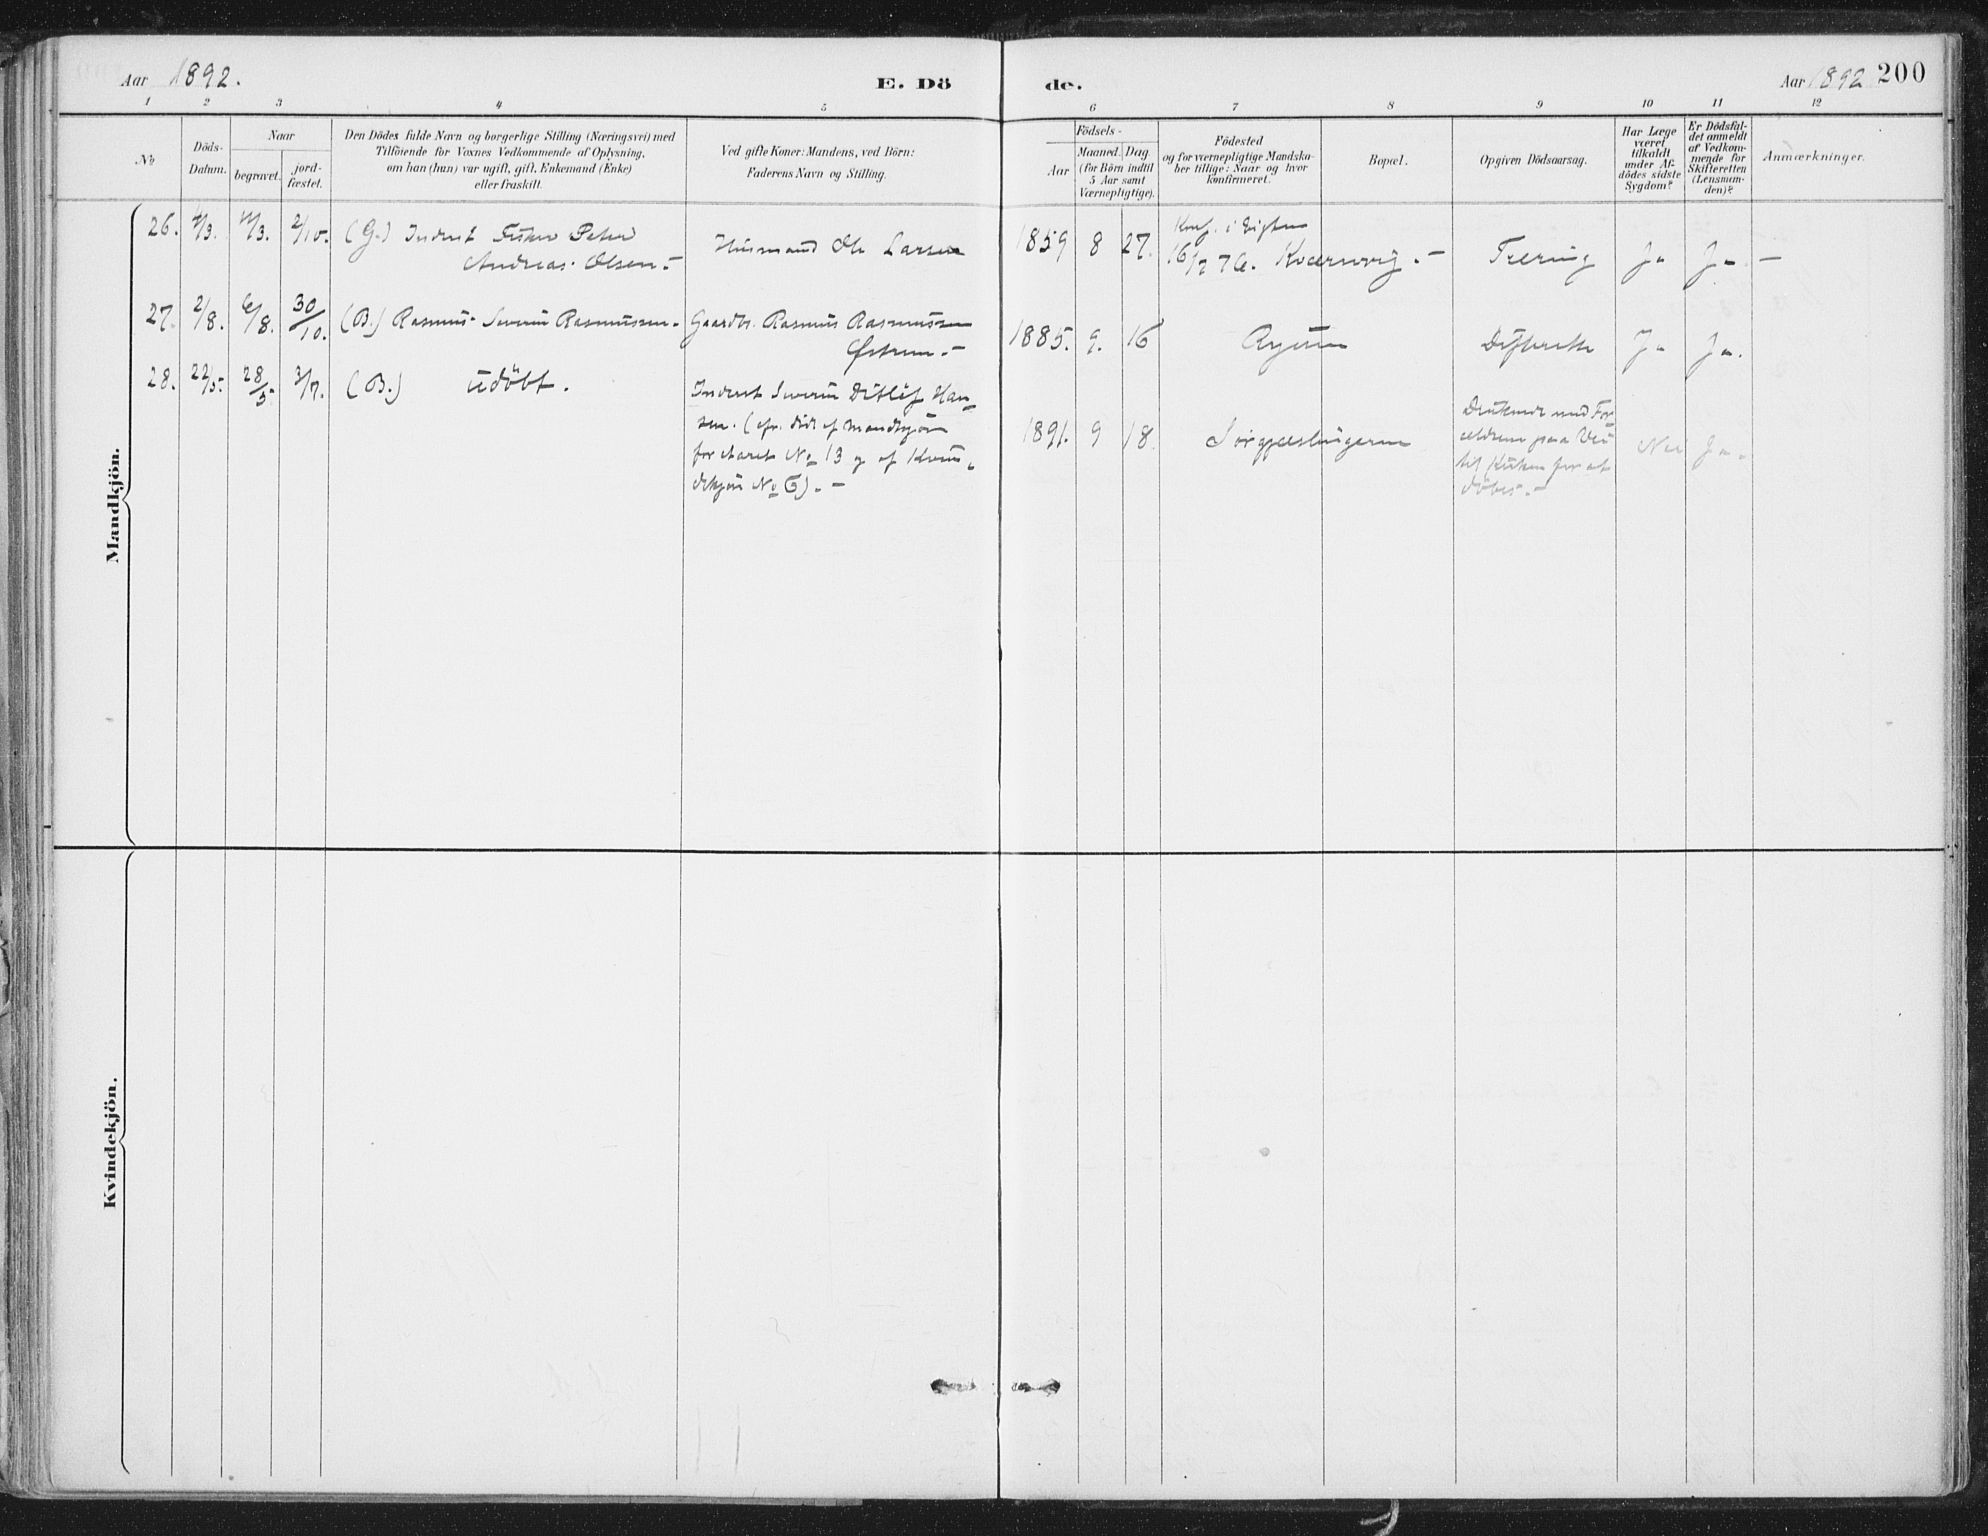 Aar 1892.
E. Dö
de.
Aar 1892 200
1 2 3 4 5 6 7 8 9 10 11 12
No
Döds-
Datum.
Naar
begravet.
jord-
fæstet.
Den Dödes fulde Navn og borgerlige Stilling (Næringsvei) med
Tilföiende for Voxnes Vedkommende af Oplysning,
om han (hun) var ugift, gift, Enkemand (Enke)
eller fraskilt.
Ved gifte Koner: Mandens, ved Börn:
Faderens Navn og Stilling.
Födsels-
Aar
Maaned. Dag.
(for Börn indtil
5 Aar samt
Værnepligtige).
Födested
og for værnepligtige Mandska-
ber tillige: Naar og hvor
konfirmeret.
Bopæl.
Opgiven Dödsaarsag.
Har Læge
været
tilkaldt
under Af-
dödes sidste
Sygdom?
Er Dödsfal-
det anmeldt
af Vedkom-
mende for
Skifteretten
(Lensman-
den)?
Anmærkninger.
Mandkjön.
26. 2/10. (G.) Inderst Fisker Peter
Andreas Olsen.-
Husmand Ole Larsen
1859 8 27.
Konf. i
16/7 76. Kværnvig.-
Tæring Ja Ja -
27. 2/8. 6/8. 30/10. (B.) Rasmus Severin Rasmussen.
Gaardbr. Rasmus Rasmussen
1885. 9. 16
Difteritte Ja Ja.
28. 22/5. 28/5 3/7. (B.) udöbt.
Inderst Severin Ditlef Han-
sen. (cfr. död af Mandkjön
for Aaret No 13 og af Kvin-
dekjön No 6).-
1891. 9 18.
Druknede med For-
ældrene paa Vei
til Kirken for at
döbes.-
Nei Ja.
Kvindekjön.